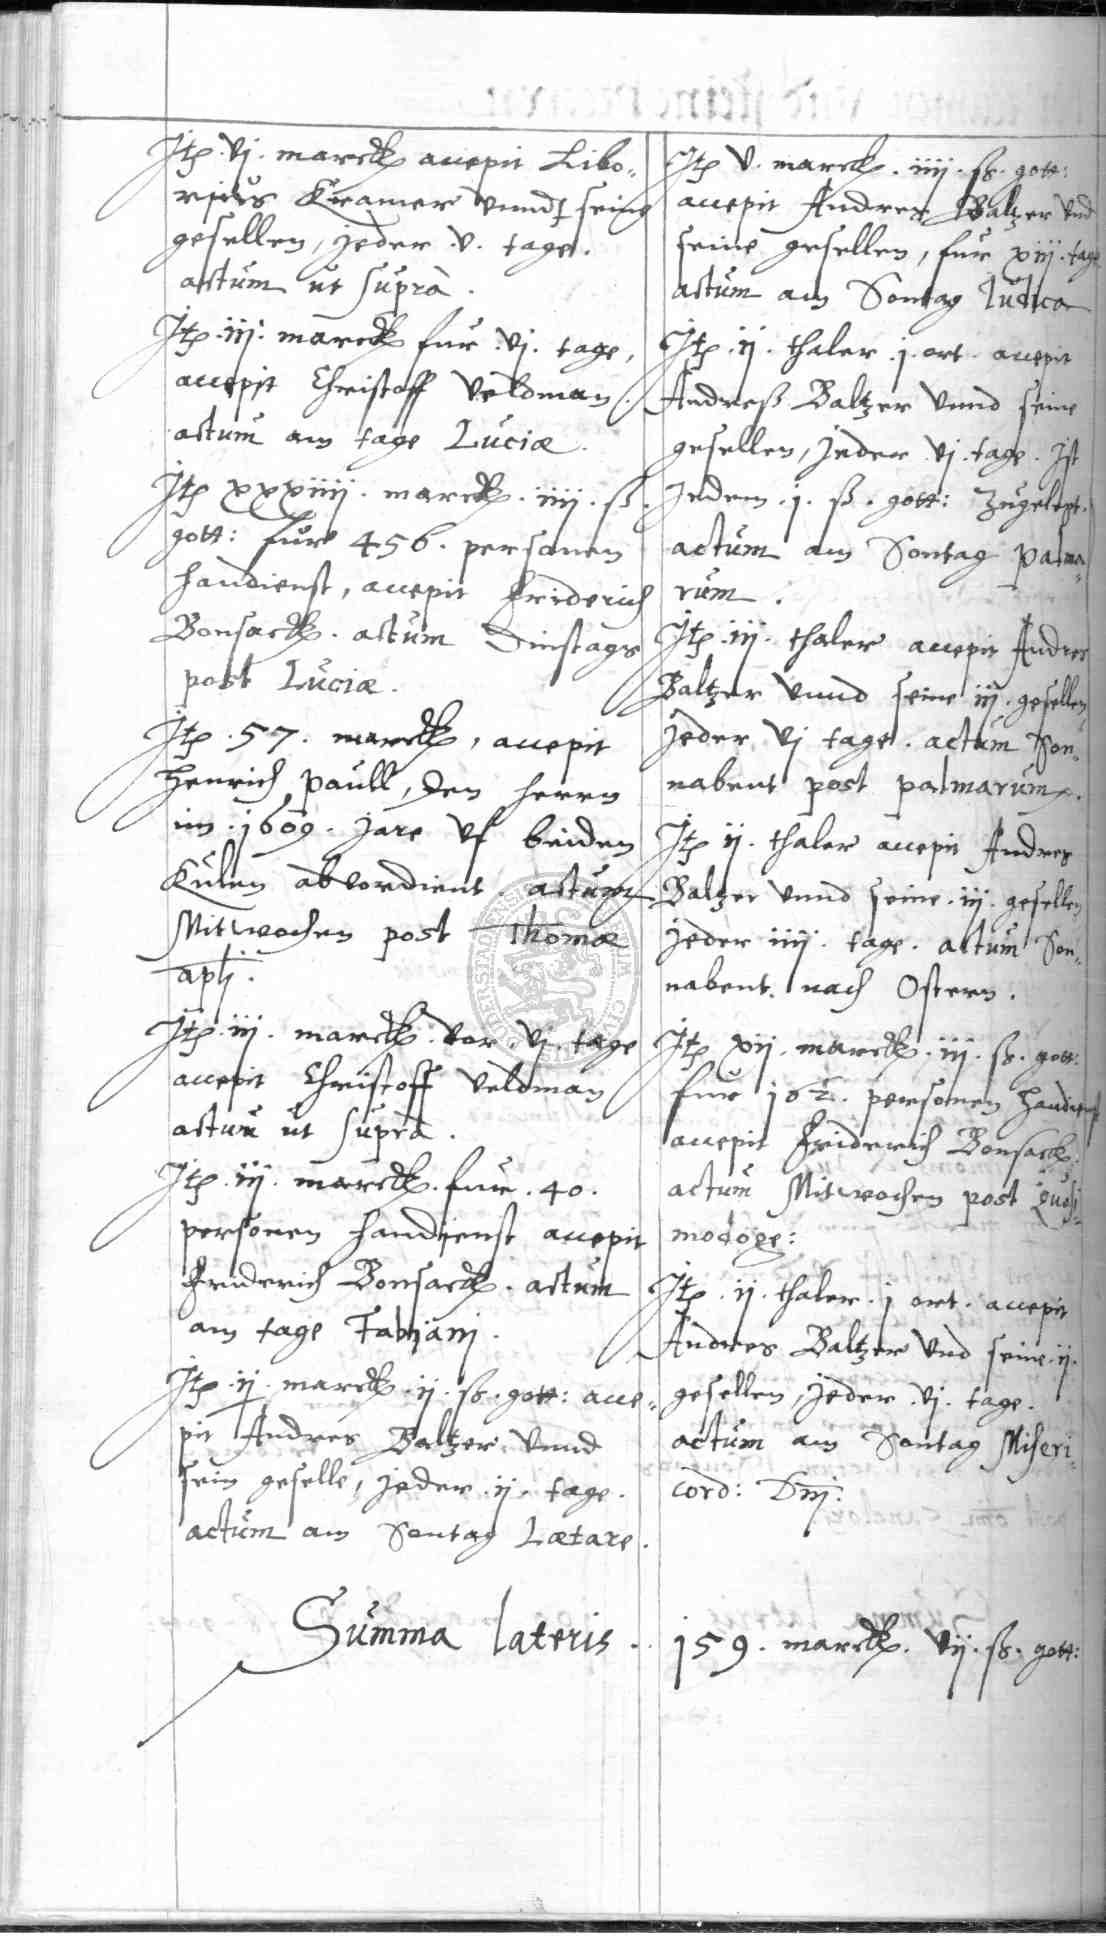 Itē. vj. marck accepit Libo-
rius Kramer vnnd seine
gesellen, jeder .v. tage.
actum ut suprà.
Itē. iij. marck fur .vj. tage,
accepit Christoff Veldman.
actum am tage Luciæ.
Itē xxxiiij. marck. iiij. ß.
gott: fur 456. personen
handienst, accepit Friderich
Bonsack. actum Dinstags
post Luciæ.
Itē. 57. marck, accepit
Henrich Paull, den herrn
im 1609. jare vf beiden
Kulen abvordient. actum
Mitwochen post Thomæ
aptī.
Itē. iij. marck vor .vj. tage
accepit Christoff Veldman
actum ut suprà.
Itē. iij. marck. fur. 40.
personen handienst accepit
Friderich Bonsack. actum
am tage Fabiani.
Itē. ij. marck. ij. ß. gott: acce-
pit Andres Baltzer vnnd
sein geselle, jeder .ij. tage.
actum am Sontag Lætare.
Itē v. marck. iiij. ß. gott:
accepit Andres Baltzer vnd
seine gesellen, fur xiij. tage
actum am Sontag Iudica
Itē. ij. thaler .j. ort. accepit
Andreß Baltzer vnnd seine
gesellen, jeder vj. tage. Ist
jedem .j. ß. gott: zugelegt.
actum am Sontag palma-
rum.
Itē. iij. thaler accepit Andres
Baltzer vnnd seine iij. gesellen,
jeder vj tage. actum Son-
nabent post palmarum.
Itē ij. thaler accepit Andres
Baltzer vnnd seine .iij. gesellen
jeder iiij. tage. actum Son-
nabent. nach Ostern.
Itē xij. marck. iij. ß. gott:
fur 162. personen handienst
accepit Friderich Bonsack.
actum Mitwochen post Quasi-
modoge:
Itē. ij. thaler. j ort. accepit
Andres Baltzer vnd seine .ij.
gesellen, jeder .vj. tage.
actum am Sontag Miseri-
cord: Dnj:
Summa lateris .. 159. marck. vij. ß. gott: